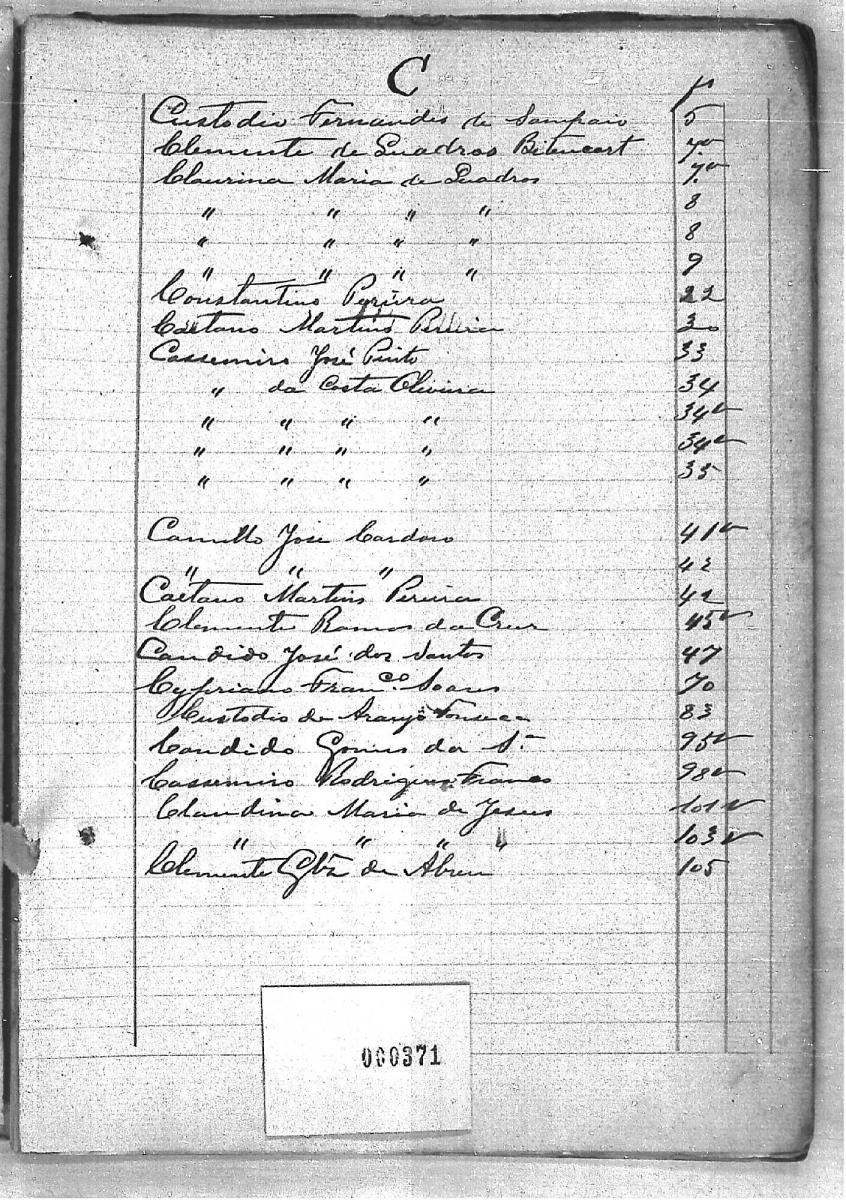 C
fs
Custodio Fernandes de Sampaio 5
Clemente de Quadros Bitencort 7v
Claurina Maria de Quadros 7v
" " " " 8
" " " " 8
" " " " 9
Constantino Pereira 22
Caetano Martins Pereira 30
Cassemiro José Pinto 33
" da Costa Oliveira 34
" " " " 34v
" " " " 34v
" " " " 35
Camillo José Cardoso 41v
" " " 42
Caetano Martins Pereira 42
Clemente Ramos da Cruz 45v
Candido José dos Santos 47
Cypriano Franco. Soares 70
Custodio de Araujo Fonseca 83
Candido Gomes da Sa 95v
Cassemiro Rodrigues Franco 98v
Claudina Maria de Jesus 101v
" " " " 103v
Clemente de Abreu 105
000371